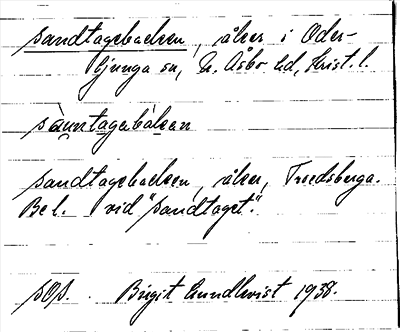 sandtagebacken, åker i Oder-
ljunga sn, N. Åsbo hd, Krist. l.
sàn̩tagabákan
sandtagebacken, åker, Tredsberga.
Bel. vid "sandtaget".
sOp. Birgit Lundkvist 1938.